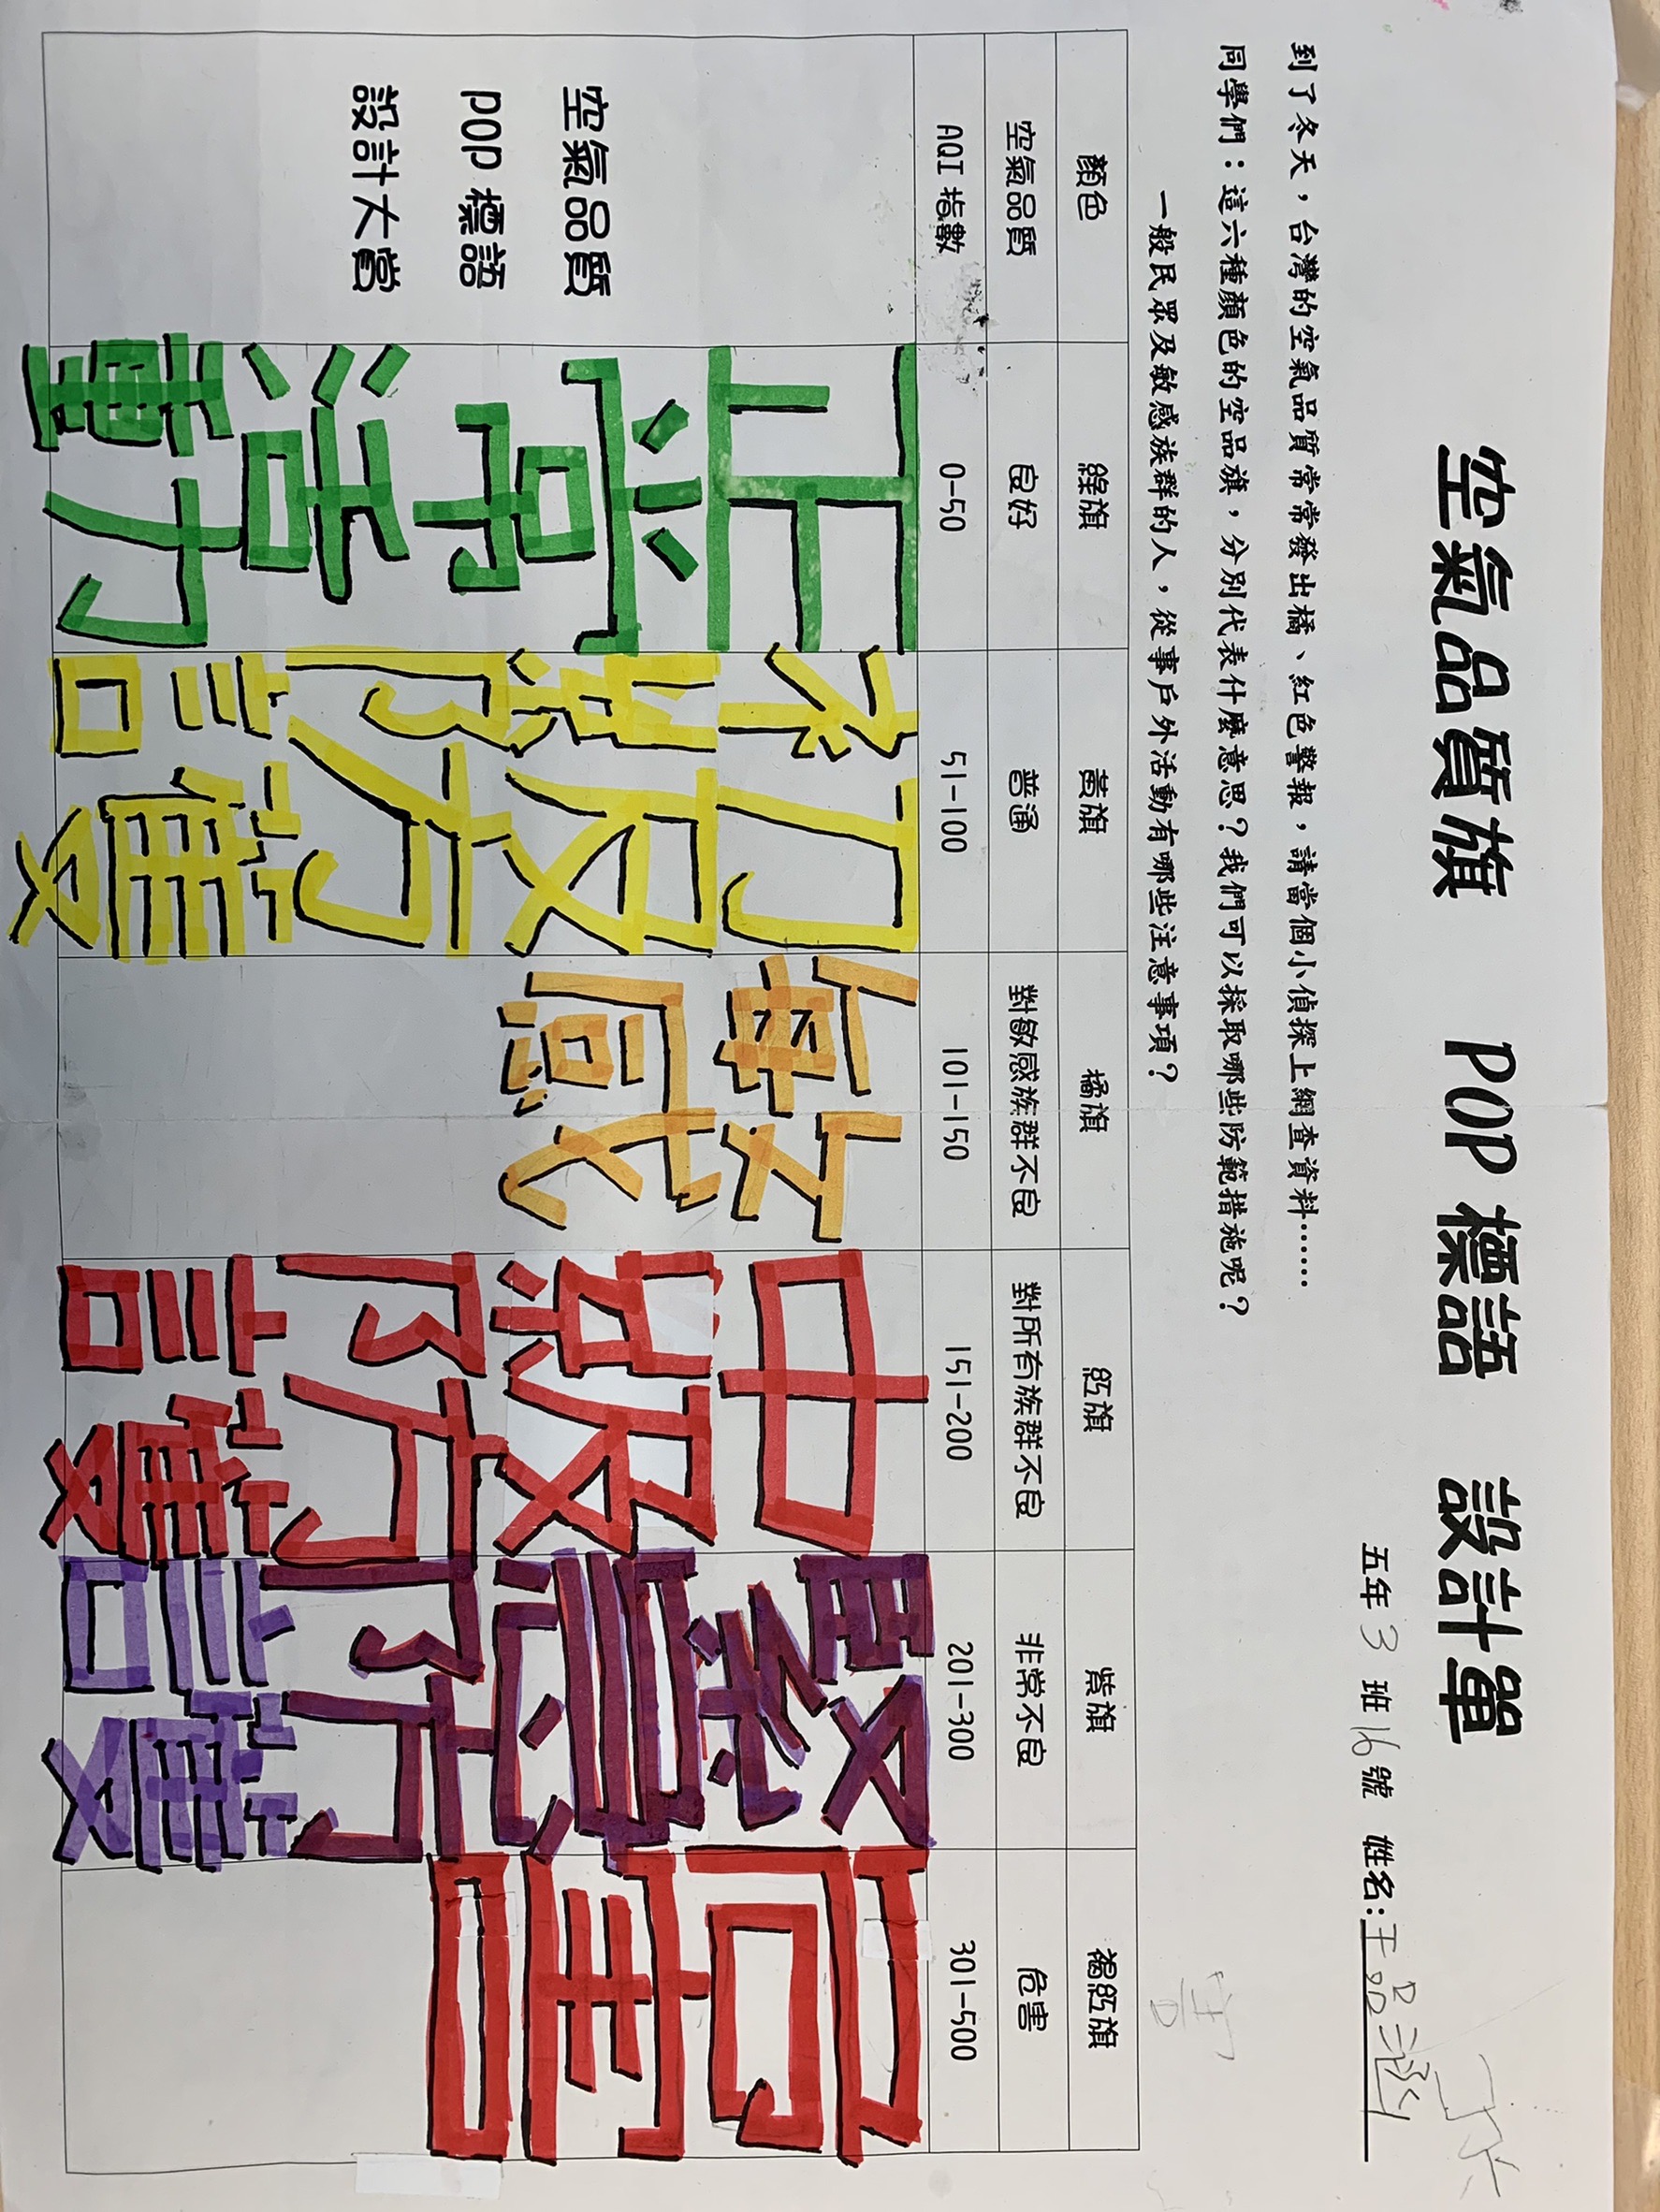 空氣品質旗 POP 標語 設計單
五年 3 班 16 號 姓名:王品涵
到了冬天，台灣的空氣品質常常發出橘、紅色警報，請當個小偵探上網查資料……
同學們：這六種顏色的空品旗，分別代表什麼意思？我們可以採取哪些防範措施呢？
一般民眾及敏感族群的人，從事戶外活動有哪些注意事項？
顏色 綠旗 黃旗 橘旗 紅旗 紫旗 褐紅旗
空氣品質 良好 普通 對敏感族群不良 對所有族群不良 非常不良 危害
AQI 指數 0-50 51-100 101-150 151-200 201-300 301-500
空氣品質
POP 標語
設計大賞
正常活動
初級防護
敏感
中級防護
緊急防護
危害